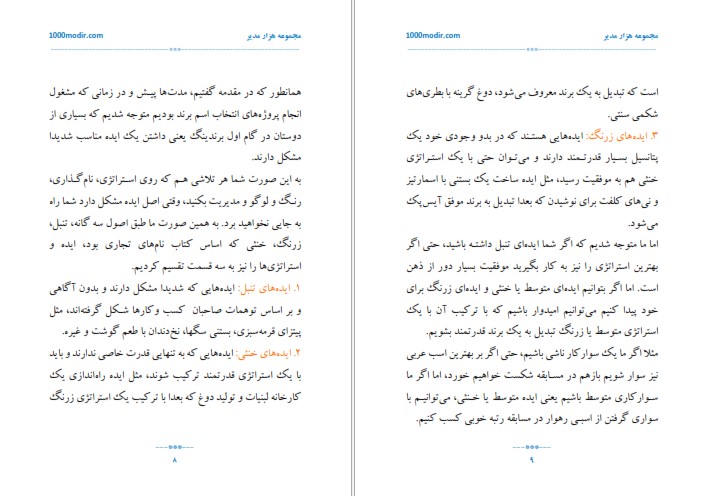 مجموعه هزار مدیر
1000modir.com
همانطور که در مقدمه گفتیم، مدت‌ها پیش و در زمانی که مشغول
انجام پروژه‌های انتخاب اسم برند بودیم متوجه شدیم که بسیاری از
دوستان در گام اول برندینگ یعنی داشتن یک ایده مناسب شدیدا
مشکل دارند.
به این صورت شما هر تلاشی هم که روی استراتژی، نام‌گذاری،
رنگ و لوگو و مدیریت بکنید، وقتی اصل ایده مشکل دارد شما راه
به جایی نخواهید برد. به همین صورت ما طبق اصول سه گانه، تنبل،
زرنگ، خنثی که اساس کتاب نام‌های تجاری بود، ایده و
استراتژی‌ها را نیز به سه قسمت تقسیم کردیم.
۱. ایده‌های تنبل: ایده‌هایی که شدیدا مشکل دارند و بدون آگاهی
و بر اساس توهمات صاحبان کسب وکارها شکل گرفته‌اند، مثل
پیتزای قرمه‌سبزی، بستنی سگها، نخ‌دندان با طعم گوشت و غیره.
۲. ایده‌های خنثی: ایده‌هایی که به تنهایی قدرت خاصی ندارند و باید
با یک استراتژی قدرتمند ترکیب شوند، مثل ایده راه‌اندازی یک
کارخانه لبنیات و تولید دوغ که بعدا با ترکیب یک استراتژی زرنگ
۸
مجموعه هزار مدیر
1000modir.com
است که تبدیل به یک برند معروف می‌شود، دوغ گرینه با بطری‌های
شکمی سنتی.
۳. ایده‌های زرنگ: ایده‌هایی هستند که در بدو وجودی خود یک
پتانسیل بسیار قدرتمند دارند و می‌توان حتی با یک استراتژی
خنثی هم به موفقیت رسید، مثل ایده ساخت یک بستنی با اسمارتیز
و نی‌های کلفت برای نوشیدن که بعدا تبدیل به برند موفق آیس‌پک
می‌شود.
اما ما متوجه شدیم که اگر شما ایده‌ای تنبل داشته باشید، حتی اگر
بهترین استراتژی را نیز به کار بگیرید موفقیت بسیار دور از ذهن
است. اما اگر بتوانیم ایده‌ای متوسط یا خنثی و ایده‌ای زرنگ برای
خود پیدا کنیم می‌توانیم امیدوار باشیم که با ترکیب آن با یک
استراتژی متوسط یا زرنگ تبدیل به یک برند قدرتمند بشویم.
مثلا اگر ما یک سوارکار ناشی باشیم، حتی اگر بر بهترین اسب عربی
نیز سوار شویم بازهم در مسابقه شکست خواهیم خورد، اما اگر ما
سوارکاری متوسط باشیم یعنی ایده متوسط یا خنثی، می‌توانیم با
سواری گرفتن از اسبی رهوار در مسابقه رتبه خوبی کسب کنیم.
۹